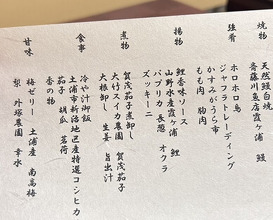 焼物
天然鰻白焼
斉藤川魚店霞ヶ浦 鰻
強肴
ホロホロ鳥
ジャフラトレーディング
かすみがうら市
もも肉 胸肉
揚物
鯉香味ソース
山野水産霞ヶ浦 鯉
パプリカ 長葱 オクラ
ズッキーニ
煮物
賀茂茄子煮卸し
大竹スイカ農園 賀茂茄子
大根卸し 生姜 旨出汁
食事
冷や汁御飯
土浦市新治地区産特選コシヒカリ
茄子 胡瓜 茗荷
香の物
甘味
梅ゼリー 土浦産 南高梅
梨 外塚農園 幸水